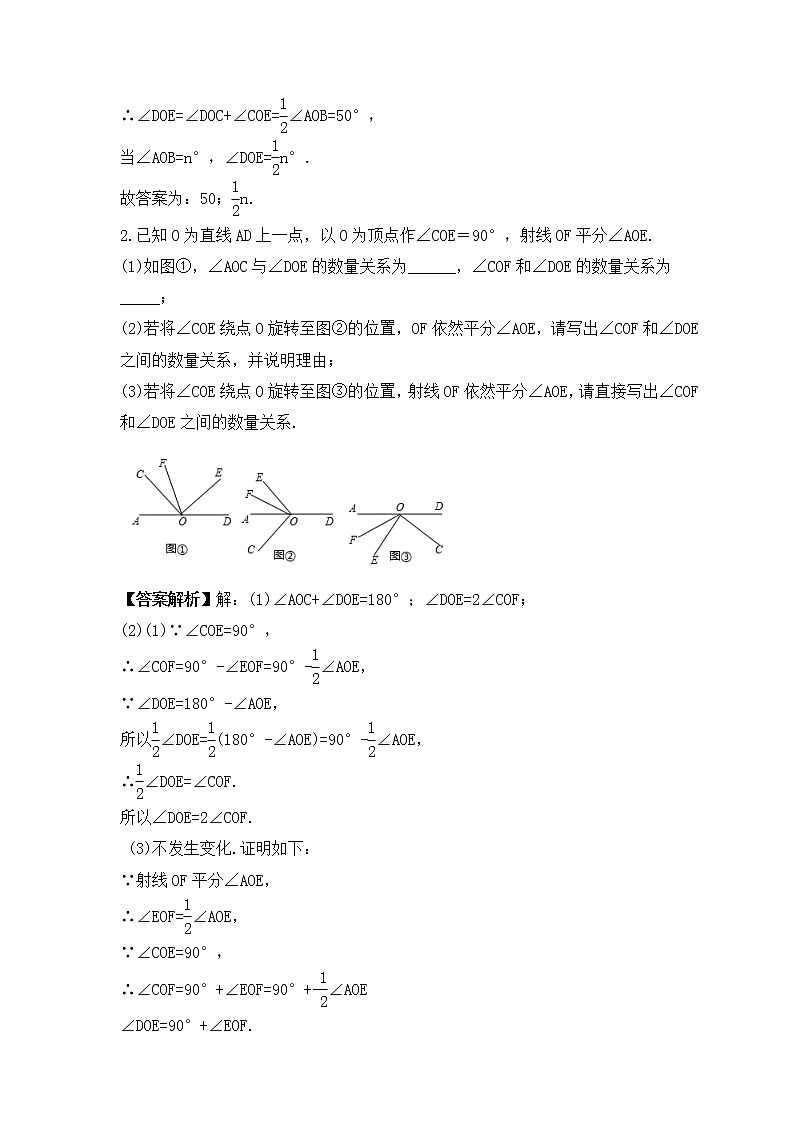 ∴∠DOE=∠DOC+∠COE=1/2∠AOB=50°,
当∠AOB=n°,∠DOE=1/2n°.
故答案为:50;1/2n.
2.已知O为直线AD上一点,以O为顶点作∠COE=90°,射线OF平分∠AOE.
(1)如图①,∠AOC与∠DOE的数量关系为______,∠COF和∠DOE的数量关系为
_____;
(2)若将∠COE绕点O旋转至图②的位置,OF依然平分∠AOE,请写出∠COF和∠DOE
之间的数量关系,并说明理由;
(3)若将∠COE绕点O旋转至图③的位置,射线OF依然平分∠AOE,请直接写出∠COF
和∠DOE之间的数量关系.
C F E
A O D
图①
E
F
A O D
C
图②
A O D
F
E C
图③
【答案解析】解:(1)∠AOC+∠DOE=180°;∠DOE=2∠COF;
(2)(1)∵∠COE=90°,
∴∠COF=90°-∠EOF=90°-1/2∠AOE,
∵∠DOE=180°-∠AOE,
所以1/2∠DOE=1/2(180°-∠AOE)=90°-1/2∠AOE,
∴1/2∠DOE=∠COF.
所以∠DOE=2∠COF.
(3)不发生变化.证明如下:
∵射线OF平分∠AOE,
∴∠EOF=1/2∠AOE,
∵∠COE=90°,
∴∠COF=90°+∠EOF=90°+1/2∠AOE
∠DOE=90°+∠EOF.